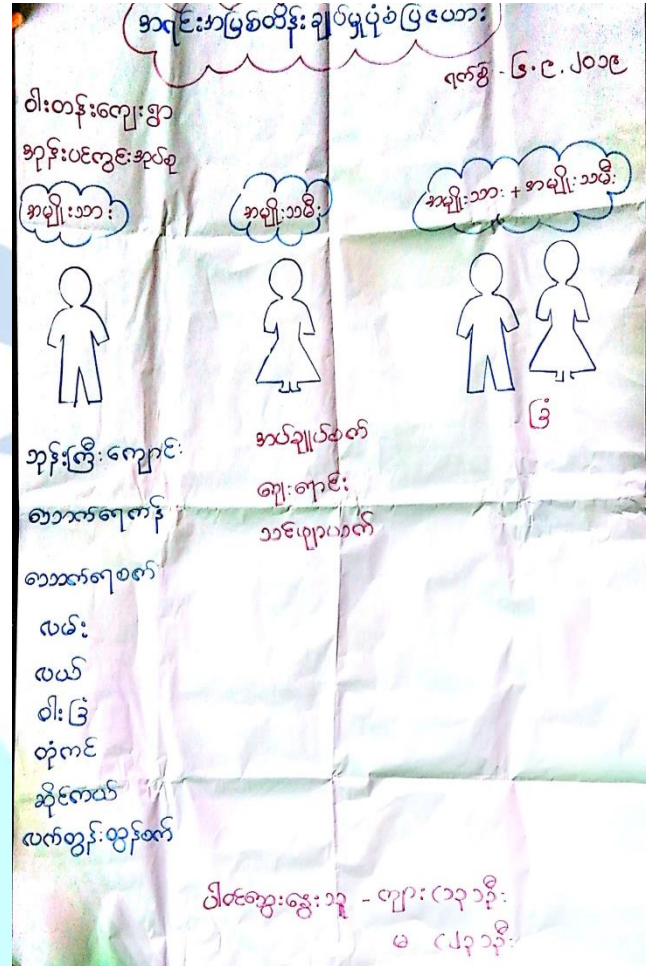 အရင်းအမြစ်ထိန်းချုပ်မှုပုံစံပြဇယား
ရက်စွဲ - ၆.၉.၂၀၁၉
ဝါးတန်းကျေးရွာ
အုန်းပင်ကွင်းအုပ်စု
အမျိုးသား
အမျိုးသမီး
အမျိုးသား + အမျိုးသမီး
ဘုန်းကြီးကျောင်း
သောက်ရေကန်
သောက်ရေစက်
လမ်း
လယ်
ဝါးခြံ
တုံကင်
ဆိုင်ကယ်
လက်တွန်းထွန်စက်
အပ်ချုပ်စက်
ဈေးရောင်း
သင်ဖျာယက်
ခြံ
ပါဝင်ဆွေးနွေးသူ - ကျား (၁၃)ဦး
မ (၂၃)ဦး